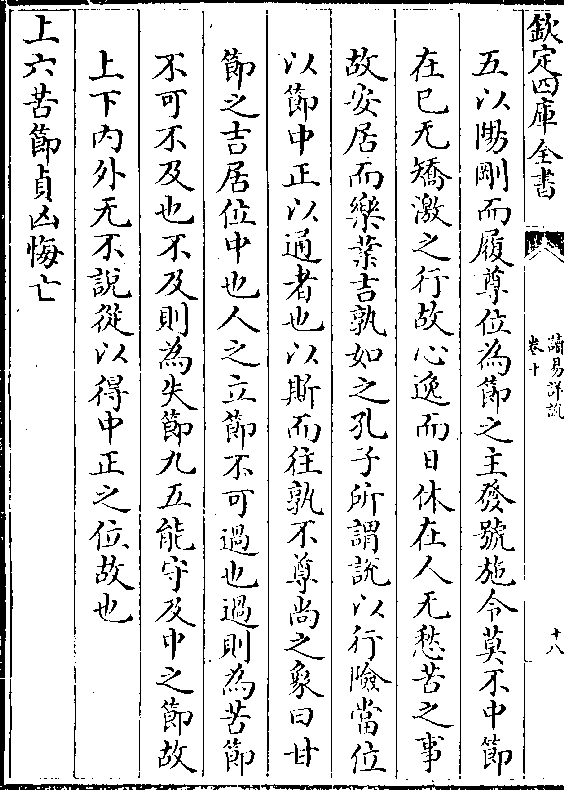 欽定四庫全書
讀易詳說
卷十
十八
五以陽剛而履尊位為節之主發號施令莫不中節
在已无矯激之行故心逸而日休在人无愁苦之事
故安居而樂業吉孰如之孔子所謂說以行險當位
以節中正以通者也以斯而往孰不尊尚之象曰甘
節之吉居位中也人之立節不可過也過則為苦節
不可不及也不及則為失節九五能守及中之節故
上下内外无不說從以得中正之位故也
上六苦節貞凶悔亡